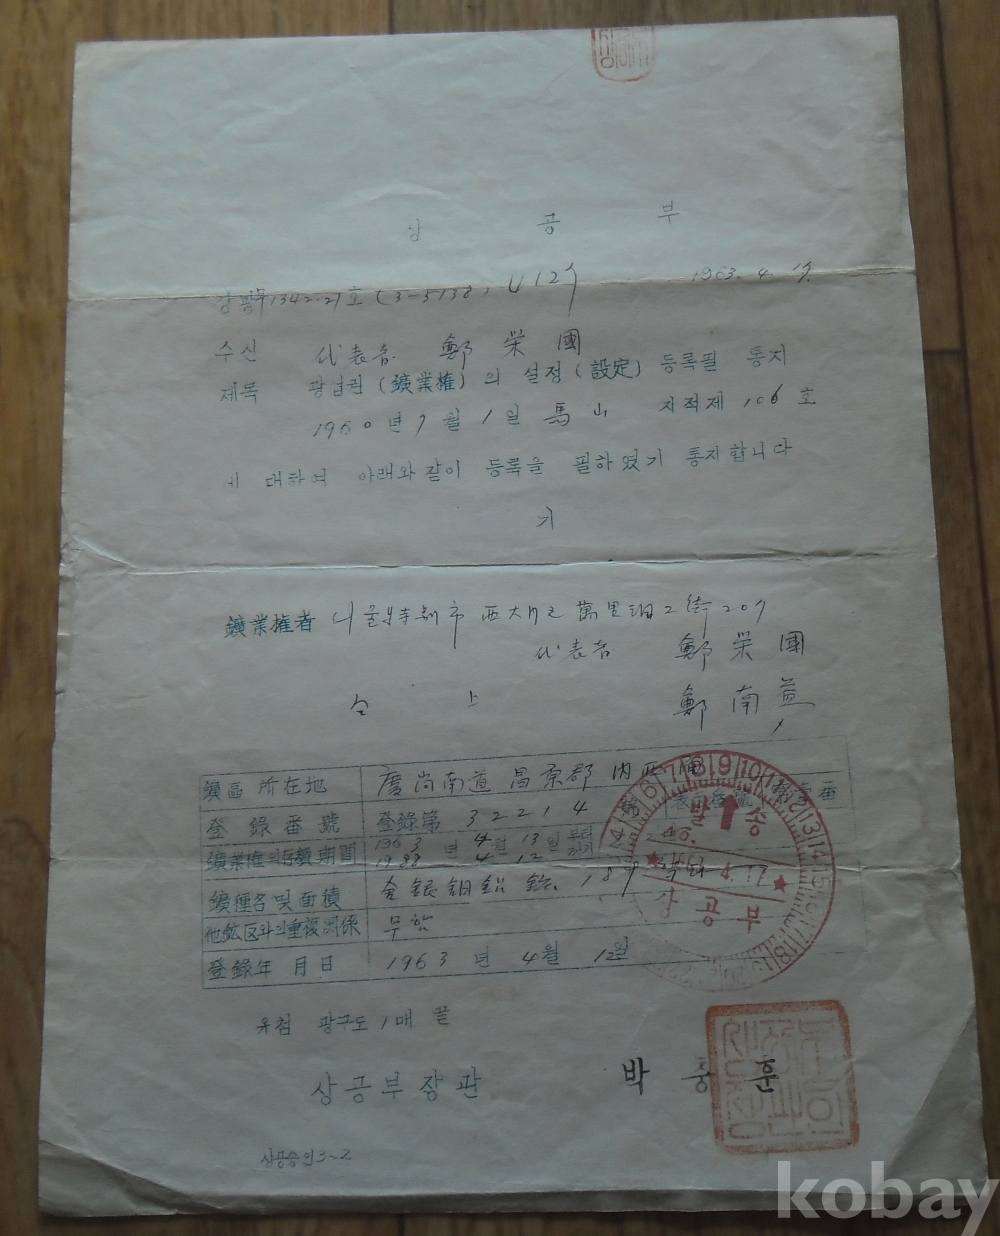 상 공 부
상광무 1342.21호 (3-5138,
1963. 4.
수신 代表者 鄭 榮 國
제목 광업권 (鑛業權) 의 설정 (設定) 등록필 통지
1960년 7월 1일 馬山 지적제 106호
에 대하여 아래와 같이 등록을 필하였기 통지합니다
기
鑛業權者 서울特別市 西大門区 萬里洞 2街 207
代表者 鄭 榮 國
鄭 南 益
鑛區 所在地 慶尙南道 昌原郡 内西面
登錄番號 登錄第 32214 號
鑛業權의存續期間 1963年 4月 13日부터 1988 4 12 까지
鑛種名 및 面積 金銀銅鉛
他鉱区와의重複関係 무함
登錄年月日 1963년 4월 12일
발송
4. 17
상공부
유첨 광구도 1매 끝
상공부장관 박 충 훈
상공승인3-2
kobay